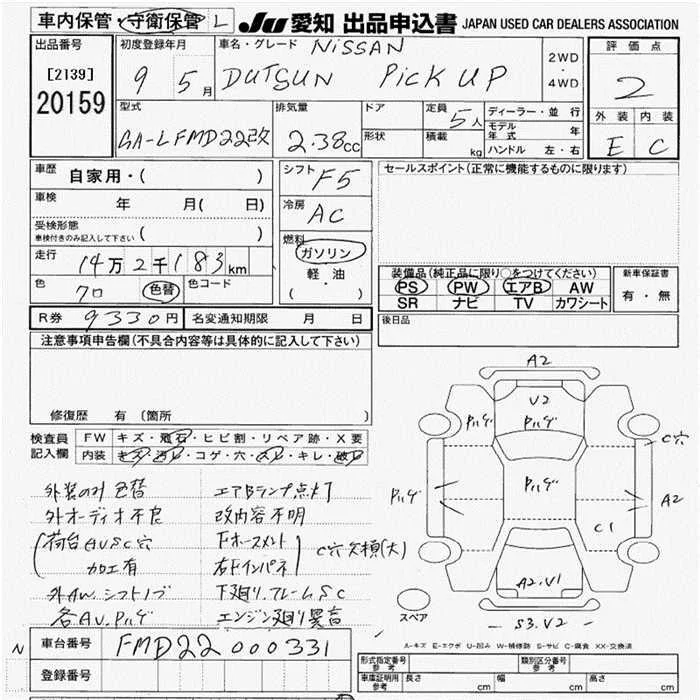 車内保管・守衛保管 L JU 愛知 出品申込書 JAPAN USED CAR DEALERS ASSOCIATION
出品番号 初度登録年月 車名・グレード NISSAN 評価点
[2139] 9 5月 DUTSUN PICK UP 2WD・4WD 2
20159
型式 排気量 ドア 定員 5人 ディーラー・並行 外装 内装
GA-LFMD22改 2.38cc 形状 積載 kg モデル年式 年 E C
ハンドル 左・右
車歴 自家用・( ) シフト F5 セールスポイント(正常に機能するものに限ります)
車検 年 月( 日) 冷房 AC
受検形態 ( )
車検付きのみ記入して下さい
走行 14万2千183km 燃料 ガソリン 装備品(純正品に限り○をつけてください) 新車保証書
色 クロ 色替 色コード 軽・油 PS PW エアB AW 有・無
( ・ ) SR ナビ TV カワシート
R券 9330円 名変通知期限 月 日 後日品
注意事項申告欄(不具合内容等は具体的に記入して下さい)
修復歴 有(箇所 )
検査員 FW キズ・飛石・ヒビ割・リペア跡・X要
記入欄 内装 キズ・汚レ・コゲ・穴・スレ・キレ・破レ
外装のみ色替 エアBランプ点灯
外オーディオ不良 改内容不明
荷台AUSC穴 下ホースメント
加工有 右ドインパネ C穴欠損(大)
外AW.シフトノブ 下廻り.フレームSC
各AU.Pハゲ エンジン廻り異音
A2
V2
Pハゲ Pハゲ
C穴
Pハゲ Pハゲ A2
C1
A2.V1
スペア S3.V2
A-キズ E-エクボ U-凹み W-補修跡 S-サビ C-腐食 XX-交換済
N 車台番号 FMD22 000331
登録番号
型式指定番号 参考 類別区分番号 参考
車庫証明用 参考 長さ cm 幅 cm 高さ cm